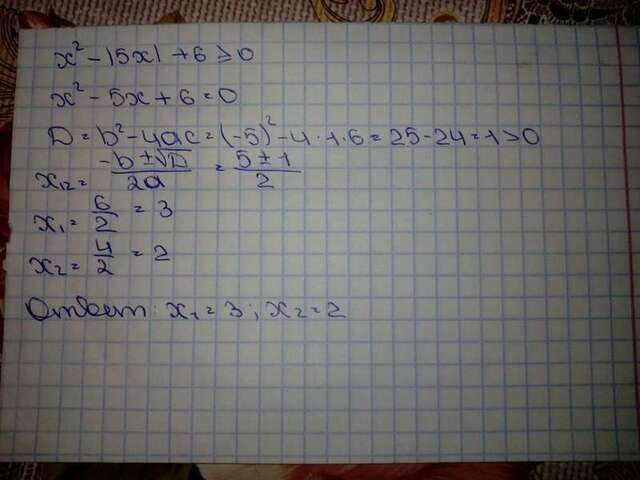 x² - |5x| + 6 ≥ 0
x² - 5x + 6 = 0
D = b² - 4ac = (-5)² - 4 · 1 · 6 = 25 - 24 = 1 > 0
x₁₂ = (-b ± √D)/2a = (5 ± 1)/2
x₁ = 6/2 = 3
x₂ = 4/2 = 2
Ответ: x₁ = 3; x₂ = 2